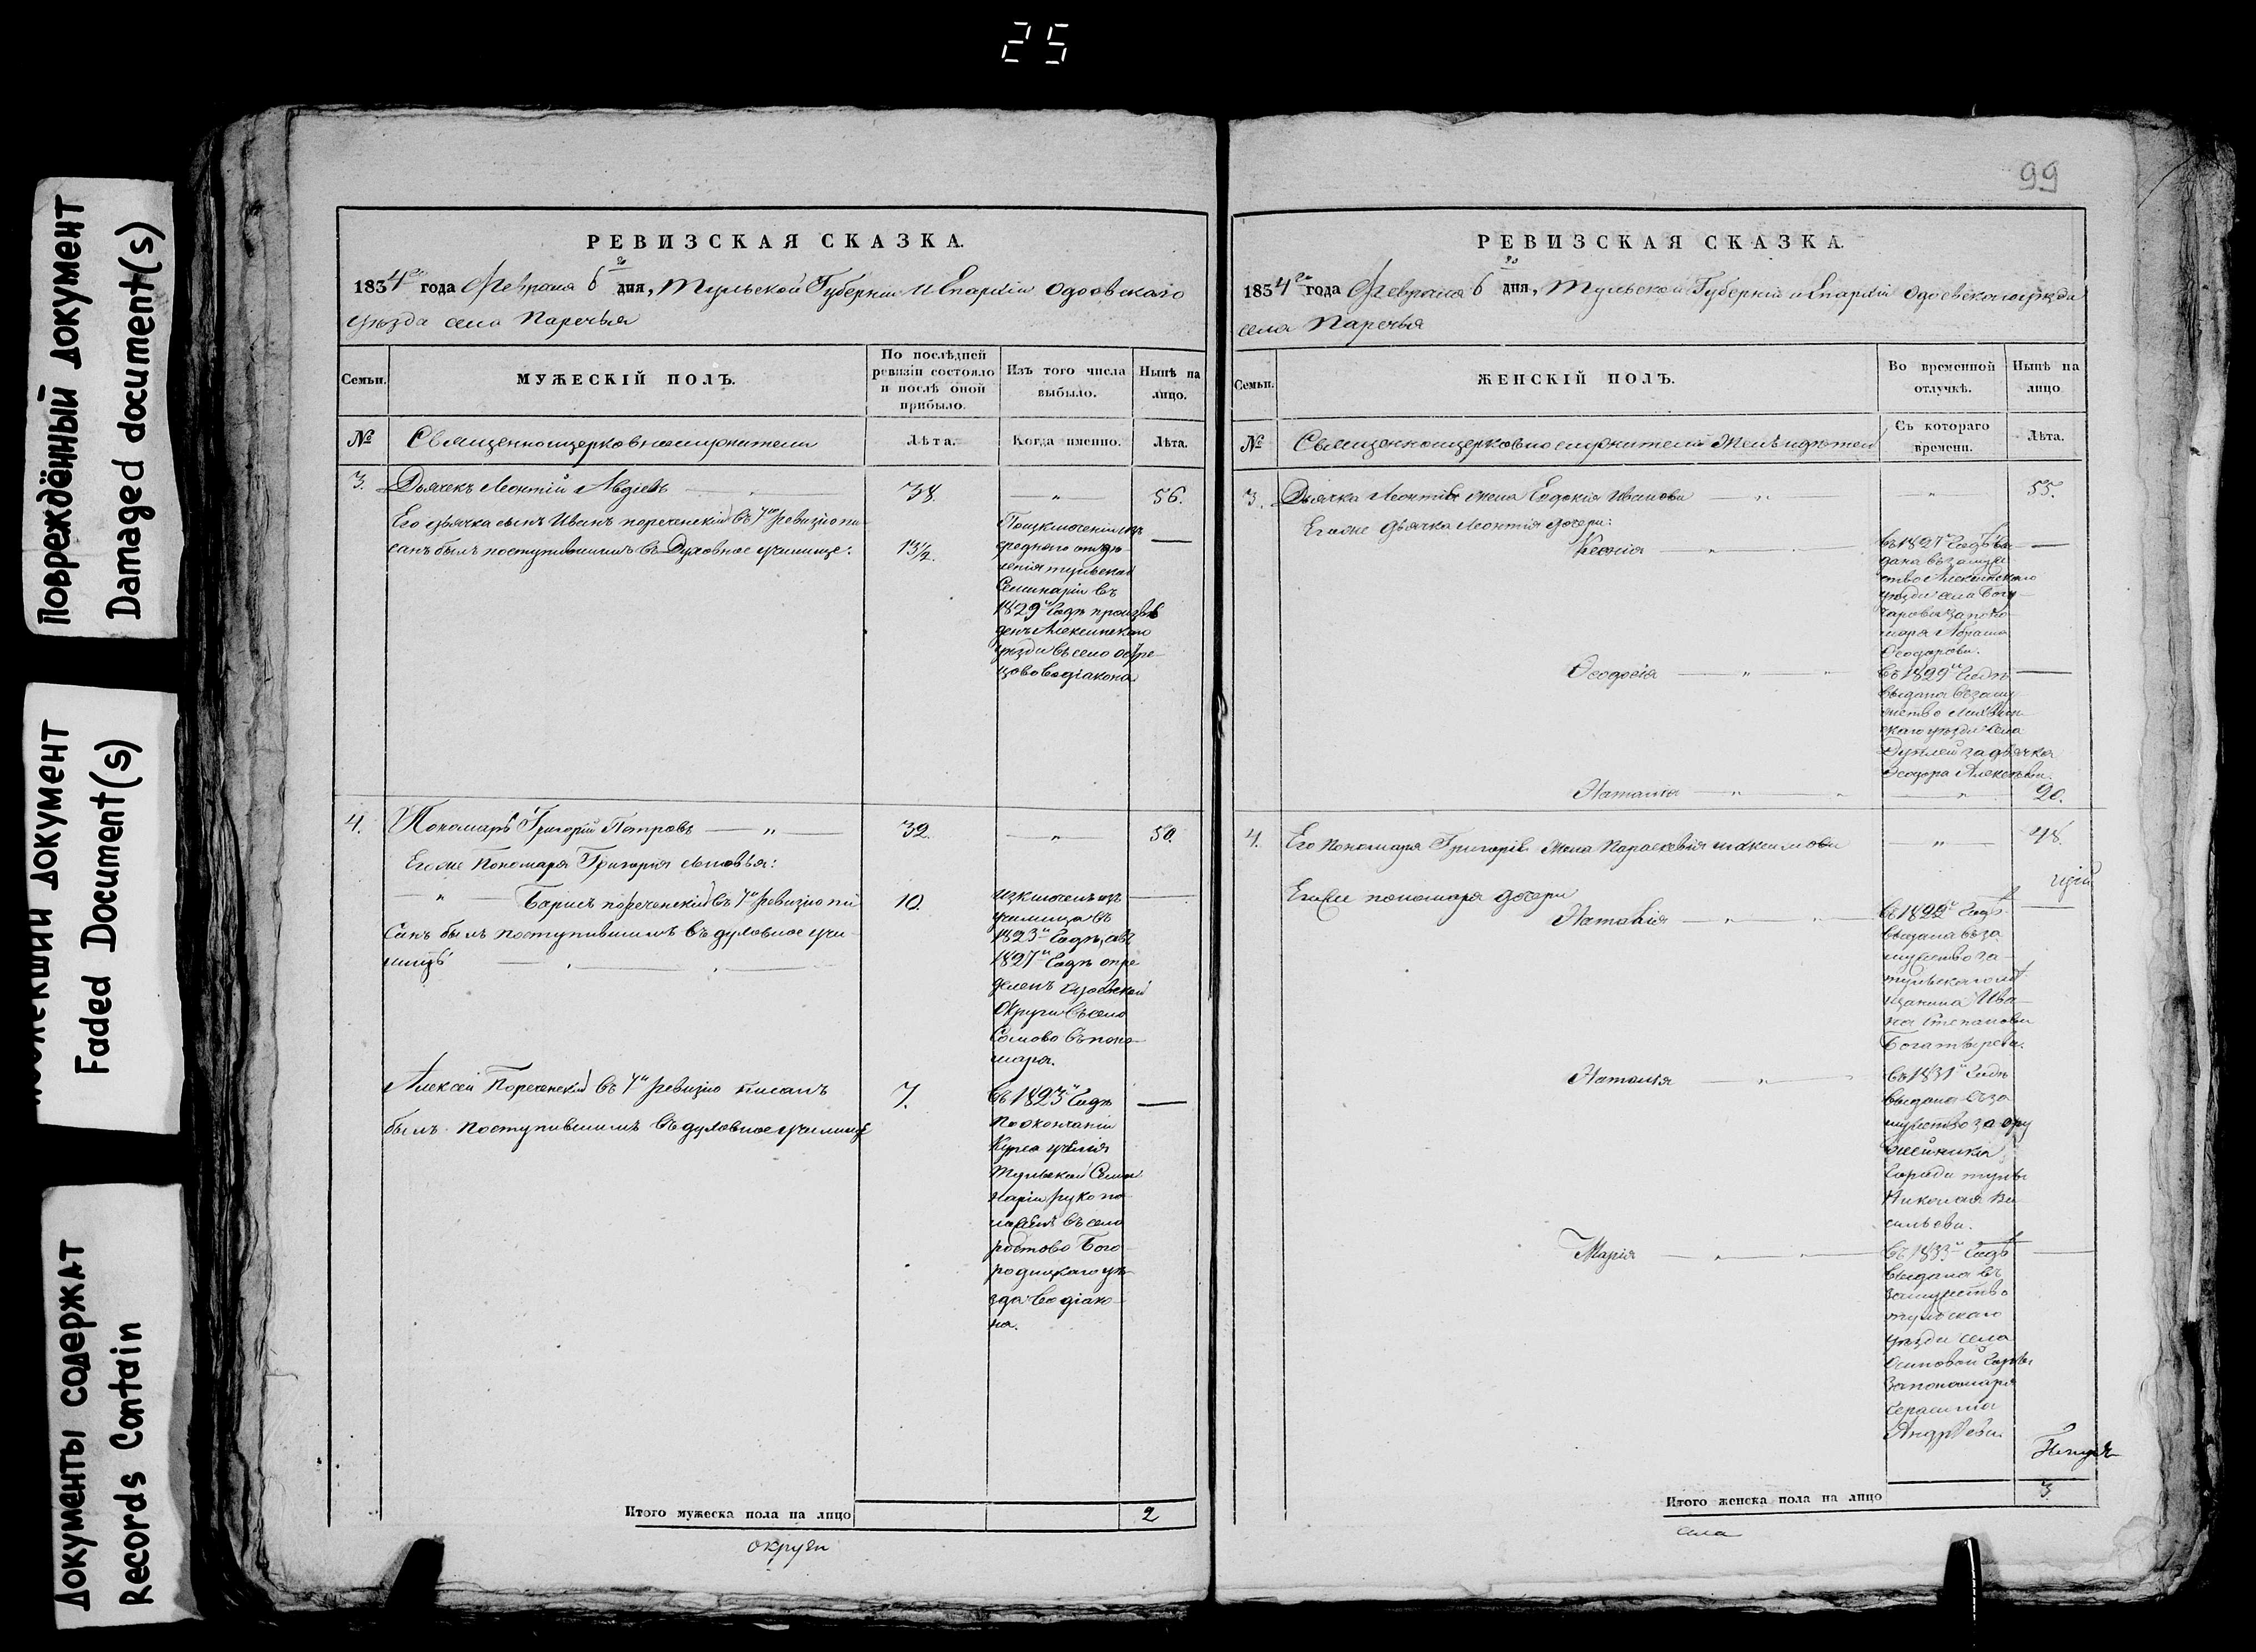 25
Повреждённый документ
Damaged document(s)
документ
Faded Document(s)
Документы содержат
Records Contain
РЕВИЗСКАЯ СКАЗКА.
1834го года Февраля 6го дня, Тульской Губернiи и Епархiи Одоевскаго
уѣзда села Паречья
Семьи.
МУЖЕСКIЙ ПОЛЪ.
По послѣдней
ревизiи состояло
и послѣ оной
прибыло.
Изъ того числа
выбыло.
Нынѣ на
лицо.
№
Священноицерковнослужители
Лѣта.
Когда именно.
Лѣта.
3.
Дьячекъ Леонтiй Авдiевъ
38.
56.
Его дьячка сынъ Иванъ пореченскiй въ 7ю ревизiю пи
санъ былъ поступившимъ въ Духовное училище.
13½.
По изключенiи изъ
средняго отдѣ-
ленiя тульской
Семинарiи въ
1829м Годѣ произве
денъ Алексинскаго
уѣзда въ село
во дiакона
4.
Пономарь Григорiй Петровъ
32.
50.
Егоже Пономаря Григорiя сыновья:
Борисъ пореченскiй въ 7ю ревизiю пи
санъ былъ поступившимъ въ духовное учи-
лище
10.
изключенъ изъ
училища въ
1823м Годѣ, а въ
1827м Годѣ опре
деленъ
Округи въ село
Сомово въ поно-
маря.
Алексѣй Пореченскiй въ 7ю ревизiю писанъ
былъ поступившимъ въ духовное училище
7.
въ 1823м Годѣ
по окончанiи
Курса ученiя
Тульской Семи
нарiи руко по
ложенъ въ село
ростово Бого
родицкаго уѣ-
зда во дiако-
на.
Итого мужеска пола на лицо
2
округи
99
РЕВИЗСКАЯ СКАЗКА.
1834го года Февраля 6го дня, Тульской Губернiи и Епархiи Одоевскаго уѣзда
села Паречья
Семьи.
ЖЕНСКIЙ ПОЛЪ.
Во временной
отлучкѣ.
Нынѣ на
лицо
№
Священноицерковнослужителей Жены и дѣти
Съ котораго
времени.
Лѣта.
3.
Дьячка Леонтiя жена Евдокiя Иванова
55.
Егоже дьячка Леонтiя дочери:
Ксенiя
въ 1827м Годѣ вы
дана въ замуже
ство Алексинскаго
уѣзда села
за поно
маря
Ѳеодорова.
Ѳеодосiя
въ 1829м Годѣ
выдана въ заму
жество Лихвин
скаго уѣзда села
за дьячка
Ѳеодора Алексѣева.
Наталiя
20.
4.
Его пономаря Григорiя жена Параскевiя Максимова
48.
Егоже пономаря дочери
Наталiя
въ 1822м Годѣ
выдана въ за
мужество за
тульскаго мѣ
щанина Ива-
на Степанова
Богатырева.
Наталiя
въ 1831м Годѣ
выдана въ за
мужество за ору
жейника
Города тулы
Николая Ва
сильева.
Марiя
въ 1833м Годѣ
выдана въ
замужество
тульскаго
уѣзда села
Осиновой Горы
за пономаря
Герасима
Андрѣева.
Итого женска пола на лицо
3.
села